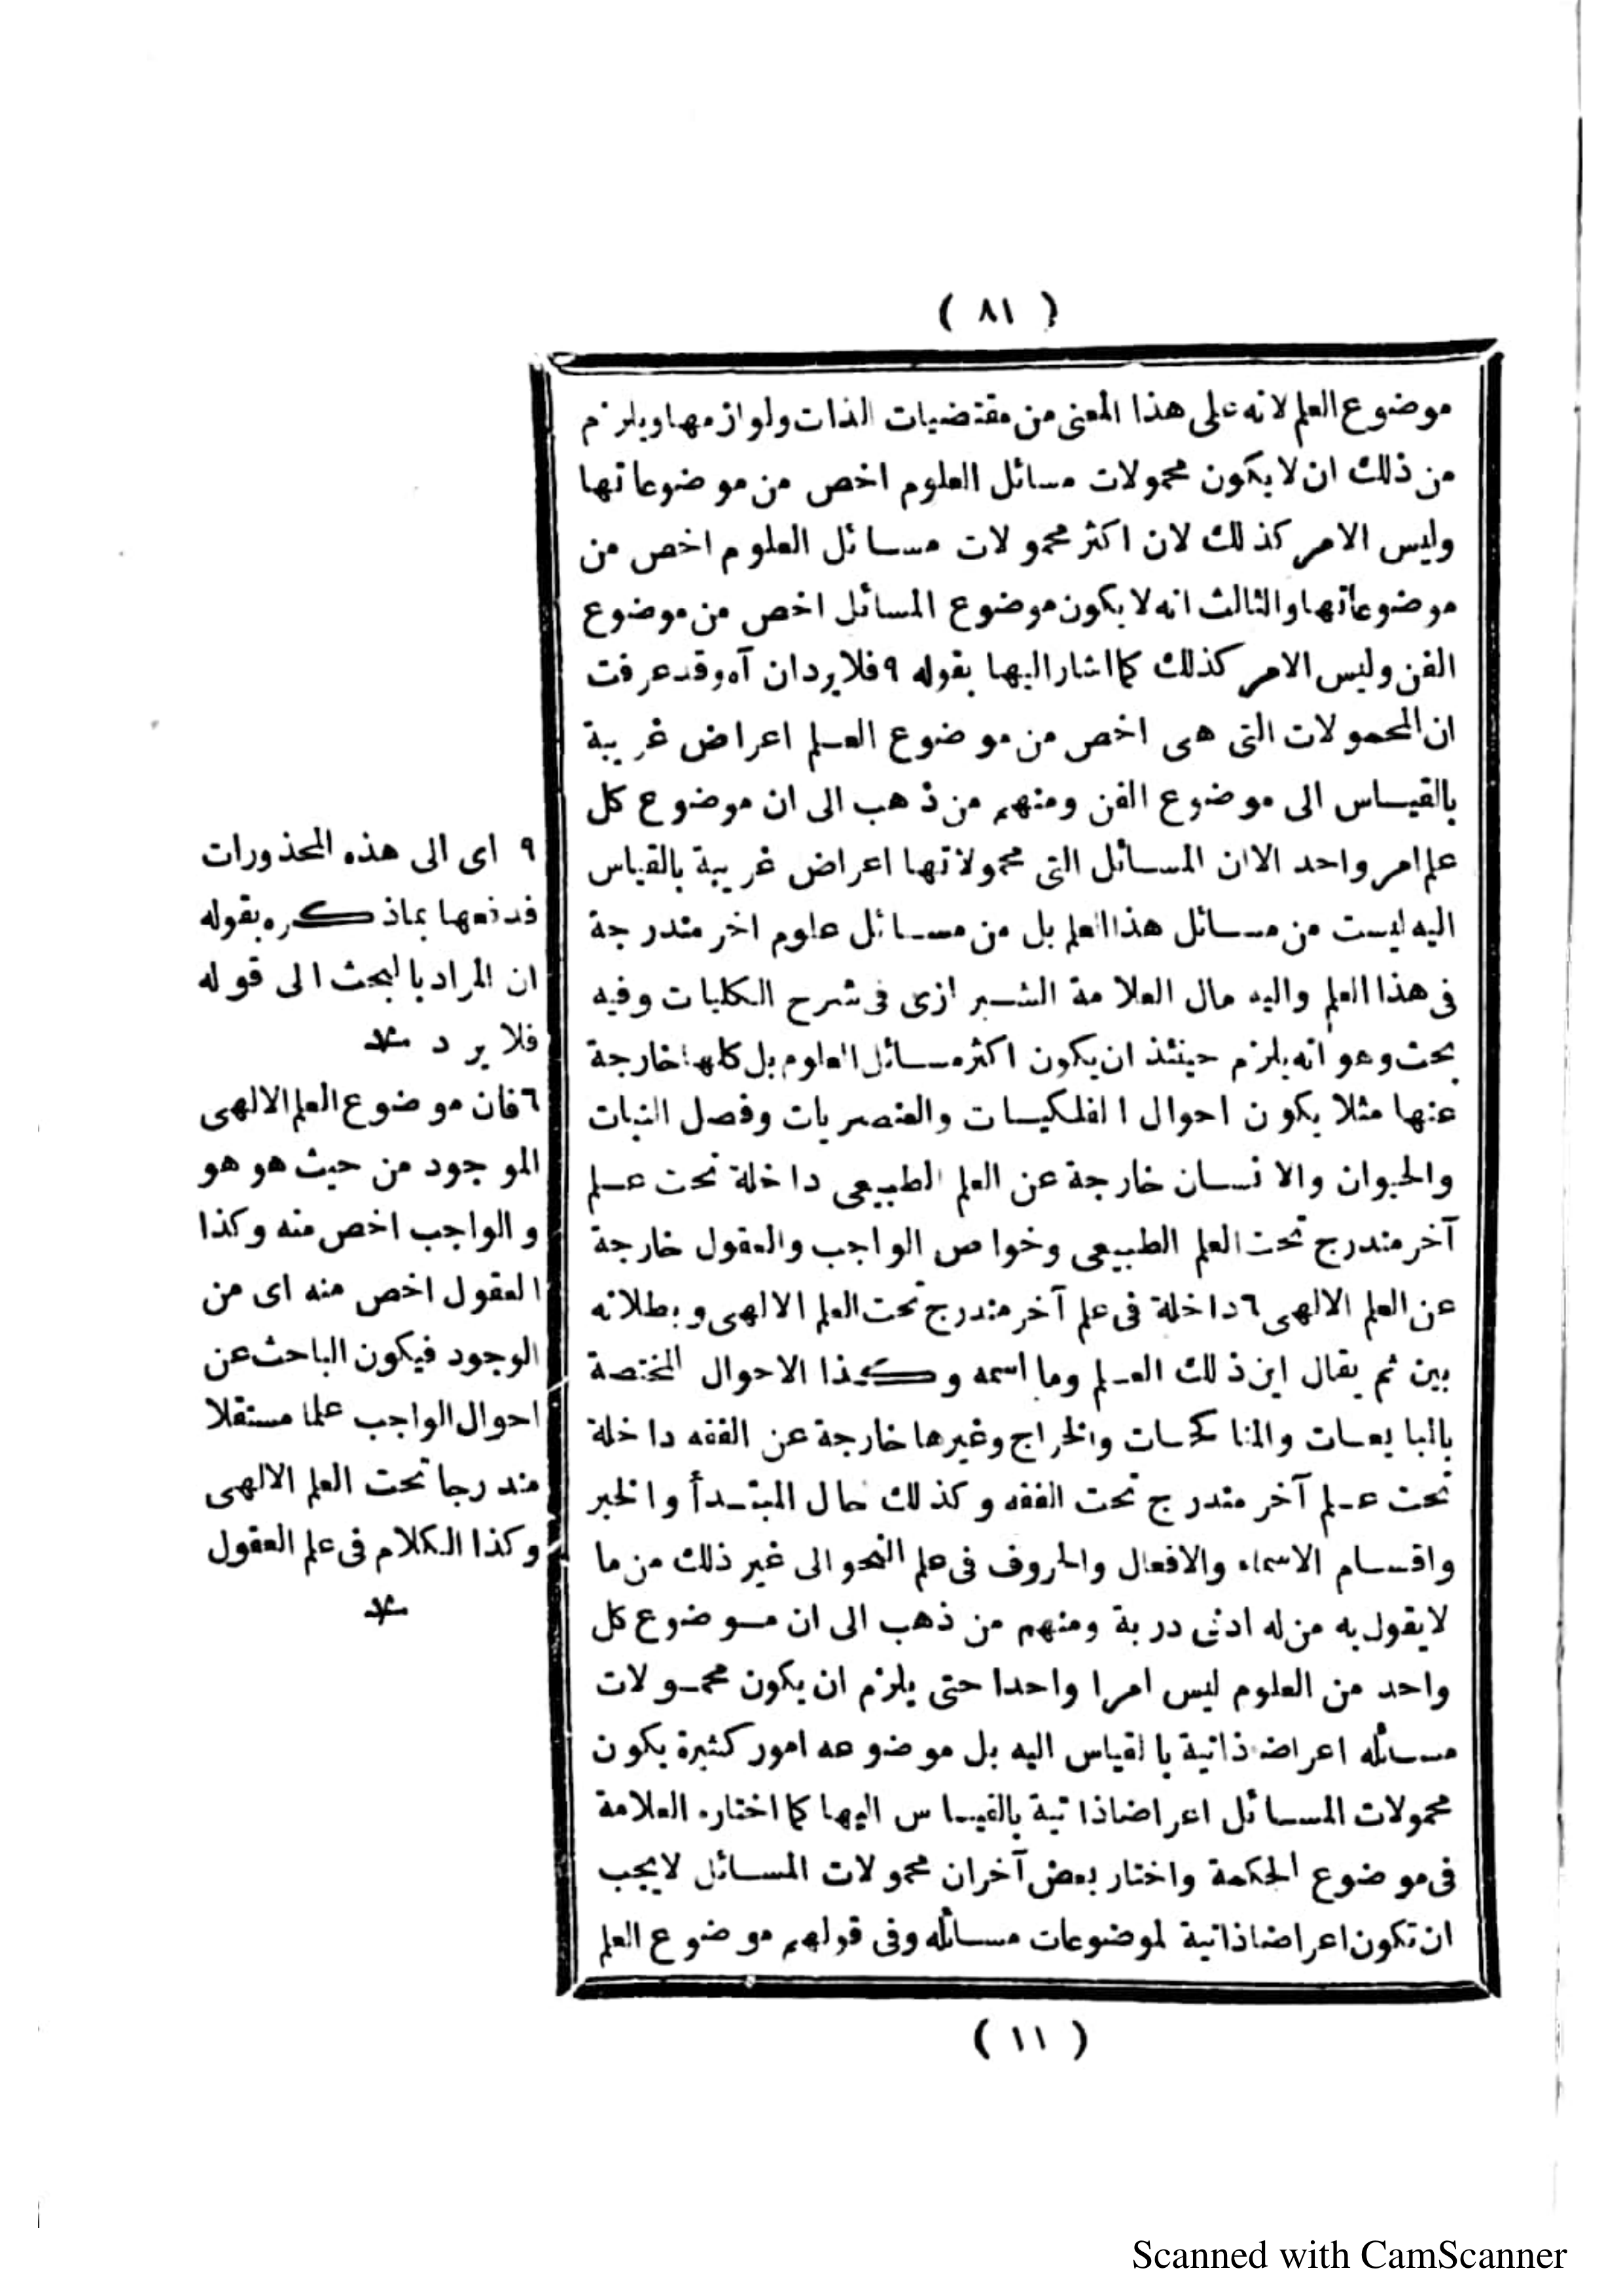 ( ٨١ )
موضوع العلم لانه على هذا المعنى من مقتضيات الذات ولوازمها ويلزم
من ذلك ان لا يكون محمولات مسائل العلوم اخص من موضوعاتها
وليس الامر كذلك لان اكثر محمولات مسائل العلوم اخص من
موضوعاتها والثالث انه لا يكون موضوع المسائل اخص من موضوع
الفن وليس الامر كذلك كما اشار اليها بقوله ٩ فلا يرد ان آه وقد عرفت
ان المحمولات التى هى اخص من موضوع العلم اعراض غريبة
بالقياس الى موضوع الفن ومنهم من ذهب الى ان موضوع كل
علم امر واحد الا ان المسائل التى محمولاتها اعراض غريبة بالقياس
اليه ليست من مسائل هذا العلم بل من مسائل علوم اخر مندرجة
فى هذا العلم واليه مال العلامة الشيرازى فى شرح الكليات وفيه
بحث وهو انه يلزم حينئذ ان يكون اكثر مسائل العلوم بل كلها خارجة
عنها مثلا يكون احوال الفلكيات والعنصريات وفصل النبات
والحيوان والانسان خارجة عن العلم الطبيعى داخلة تحت علم
آخر مندرج تحت العلم الطبيعى وخواص الواجب والعقول خارجة
عن العلم الالهى ٦ داخلة فى علم آخر مندرج تحت العلم الالهى وبطلانه
بين ثم يقال اين ذلك العلم وما اسمه وكذا الاحوال المختصة
بالمبايعات والمناكحات والخراج وغيرها خارجة عن الفقه داخلة
تحت علم آخر مندرج تحت الفقه وكذلك حال المبتدأ والخبر
واقسام الاسماء والافعال والحروف فى علم النحو الى غير ذلك من ما
لا يقول به من له ادنى دربة ومنهم من ذهب الى ان موضوع كل
واحد من العلوم ليس امرا واحدا حتى يلزم ان يكون محمولات
مسائله اعراضا ذاتية بالقياس اليه بل موضوعه امور كثيرة يكون
محمولات المسائل اعراضا ذاتية بالقياس اليها كما اختاره العلامة
فى موضوع الحكمة واختار بعض آخر ان محمولات المسائل لا يجب
ان تكون اعراضا ذاتية لموضوعات مسائله وفى قولهم موضوع العلم
٩ اى الى هذه المحذورات
فدفعها بما ذكره بقوله
ان المراد بالبحث الى قوله
فلا يرد
٦ فان موضوع العلم الالهى
الموجود من حيث هو هو
والواجب اخص منه وكذا
العقول اخص منه اى من
الوجود فيكون الباحث عن
احوال الواجب علما مستقلا
مندرجا تحت العلم الالهى
وكذا الكلام فى علم العقول
( ١١ )
Scanned with CamScanner